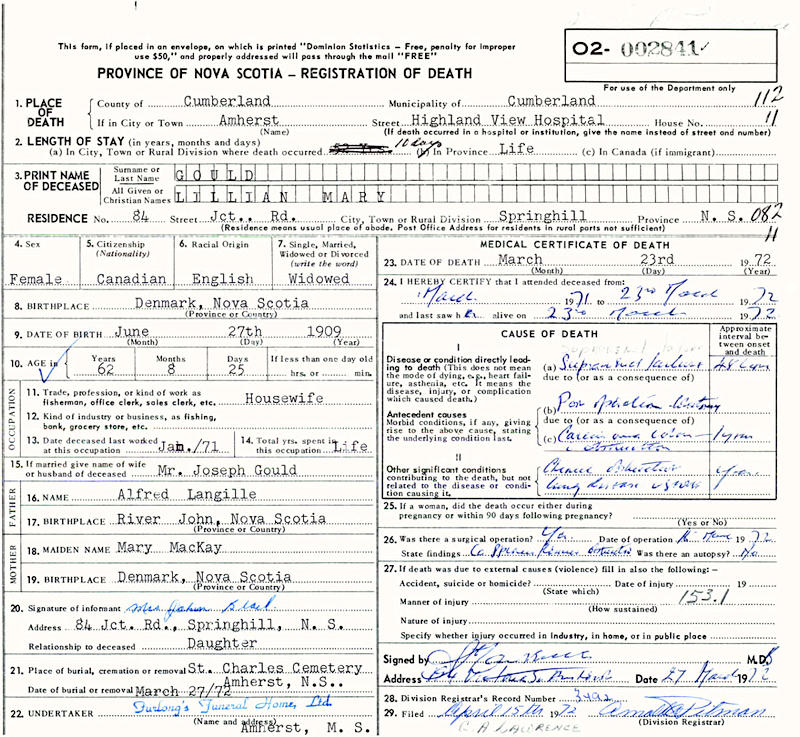 This form, if placed in an envelope, on which is printed "Dominion Statistics – Free, penalty for improper
use $50," and properly addressed will pass through the mail "FREE"
PROVINCE OF NOVA SCOTIA – REGISTRATION OF DEATH
O2- 002841
For use of the Department only
1. PLACE OF DEATH County of Cumberland Municipality of Cumberland 112
If in City or Town Amherst Street Highland View Hospital House No. 11
(Name) (If death occurred in a hospital or institution, give the name instead of street and number)
2. LENGTH OF STAY (in years, months and days)
(a) In City, Town or Rural Division where death occurred 10 days (b) In Province Life (c) In Canada (if immigrant)
3. PRINT NAME OF DECEASED Surname or Last Name GOULD
All Given or Christian Names LILLIAN MARY
RESIDENCE No. 84 Street Jct.. Rd. City, Town or Rural Division Springhill Province N. S. 082
(Residence means usual place of abode. Post Office Address for residents in rural parts not sufficient) 11
4. Sex Female
5. Citizenship (Nationality) Canadian
6. Racial Origin English
7. Single, Married, Widowed or Divorced (write the word) Widowed
8. BIRTHPLACE Denmark, Nova Scotia
(Province or Country)
9. DATE OF BIRTH June 27th 1909
(Month) (Day) (Year)
10. AGE in Years 62 Months 8 Days 25 If less than one day old
hrs. or min.
OCCUPATION
11. Trade, profession, or kind of work as fisherman, office clerk, sales clerk, etc. Housewife
12. Kind of industry or business, as fishing, bank, grocery store, etc.
13. Date deceased last worked at this occupation Jan./71
14. Total yrs. spent in this occupation Life
15. If married give name of wife or husband of deceased Mr. Joseph Gould
FATHER
16. NAME Alfred Langille
17. BIRTHPLACE River John, Nova Scotia
(Province or Country)
MOTHER
18. MAIDEN NAME Mary MacKay
19. BIRTHPLACE Denmark, Nova Scotia
(Province or Country)
20. Signature of informant Mrs
Address 84 Jct. Rd., Springhill, N. S.
Relationship to deceased Daughter
21. Place of burial, cremation or removal St. Charles Cemetery
Amherst, N.S..
Date of burial or removal March 27/72
22. UNDERTAKER Furlong's Funeral Home, Ltd.
(Name and address)
Amherst, M. S.
MEDICAL CERTIFICATE OF DEATH
23. DATE OF DEATH March 23rd 1972
(Month) (Day) (Year)
24. I HEREBY CERTIFY that I attended deceased from:
March 1971 to 23rd March 1972
and last saw her alive on 23rd March 1972
CAUSE OF DEATH
Approximate interval between onset and death
I
Disease or condition directly leading to death (This does not mean the mode of dying, e.g., heart failure, asthenia, etc. It means the disease, injury, or complication which caused death.)
(a)
due to (or as a consequence of)
Antecedent causes
Morbid conditions, if any, giving rise to the above cause, stating the underlying condition last.
(b)
due to (or as a consequence of)
(c) Carcinoma colon 1 year
II
Other significant conditions
contributing to the death, but not related to the disease or condition causing it.
lung disease
25. If a woman, did the death occur either during pregnancy or within 90 days following pregnancy?
(Yes or No)
26. Was there a surgical operation? Yes Date of operation 1972
State findings Was there an autopsy? No
27. If death was due to external causes (violence) fill in also the following: –
Accident, suicide or homicide? Date of injury 19
(State which)
Manner of injury 153.1
(How sustained)
Nature of injury
Specify whether injury occurred in industry, in home, or in public place
Signed by M.D.
Address Date 27 March 1972
28. Division Registrar's Record Number
29. Filed April 15th 1972 Pitman
(Division Registrar)